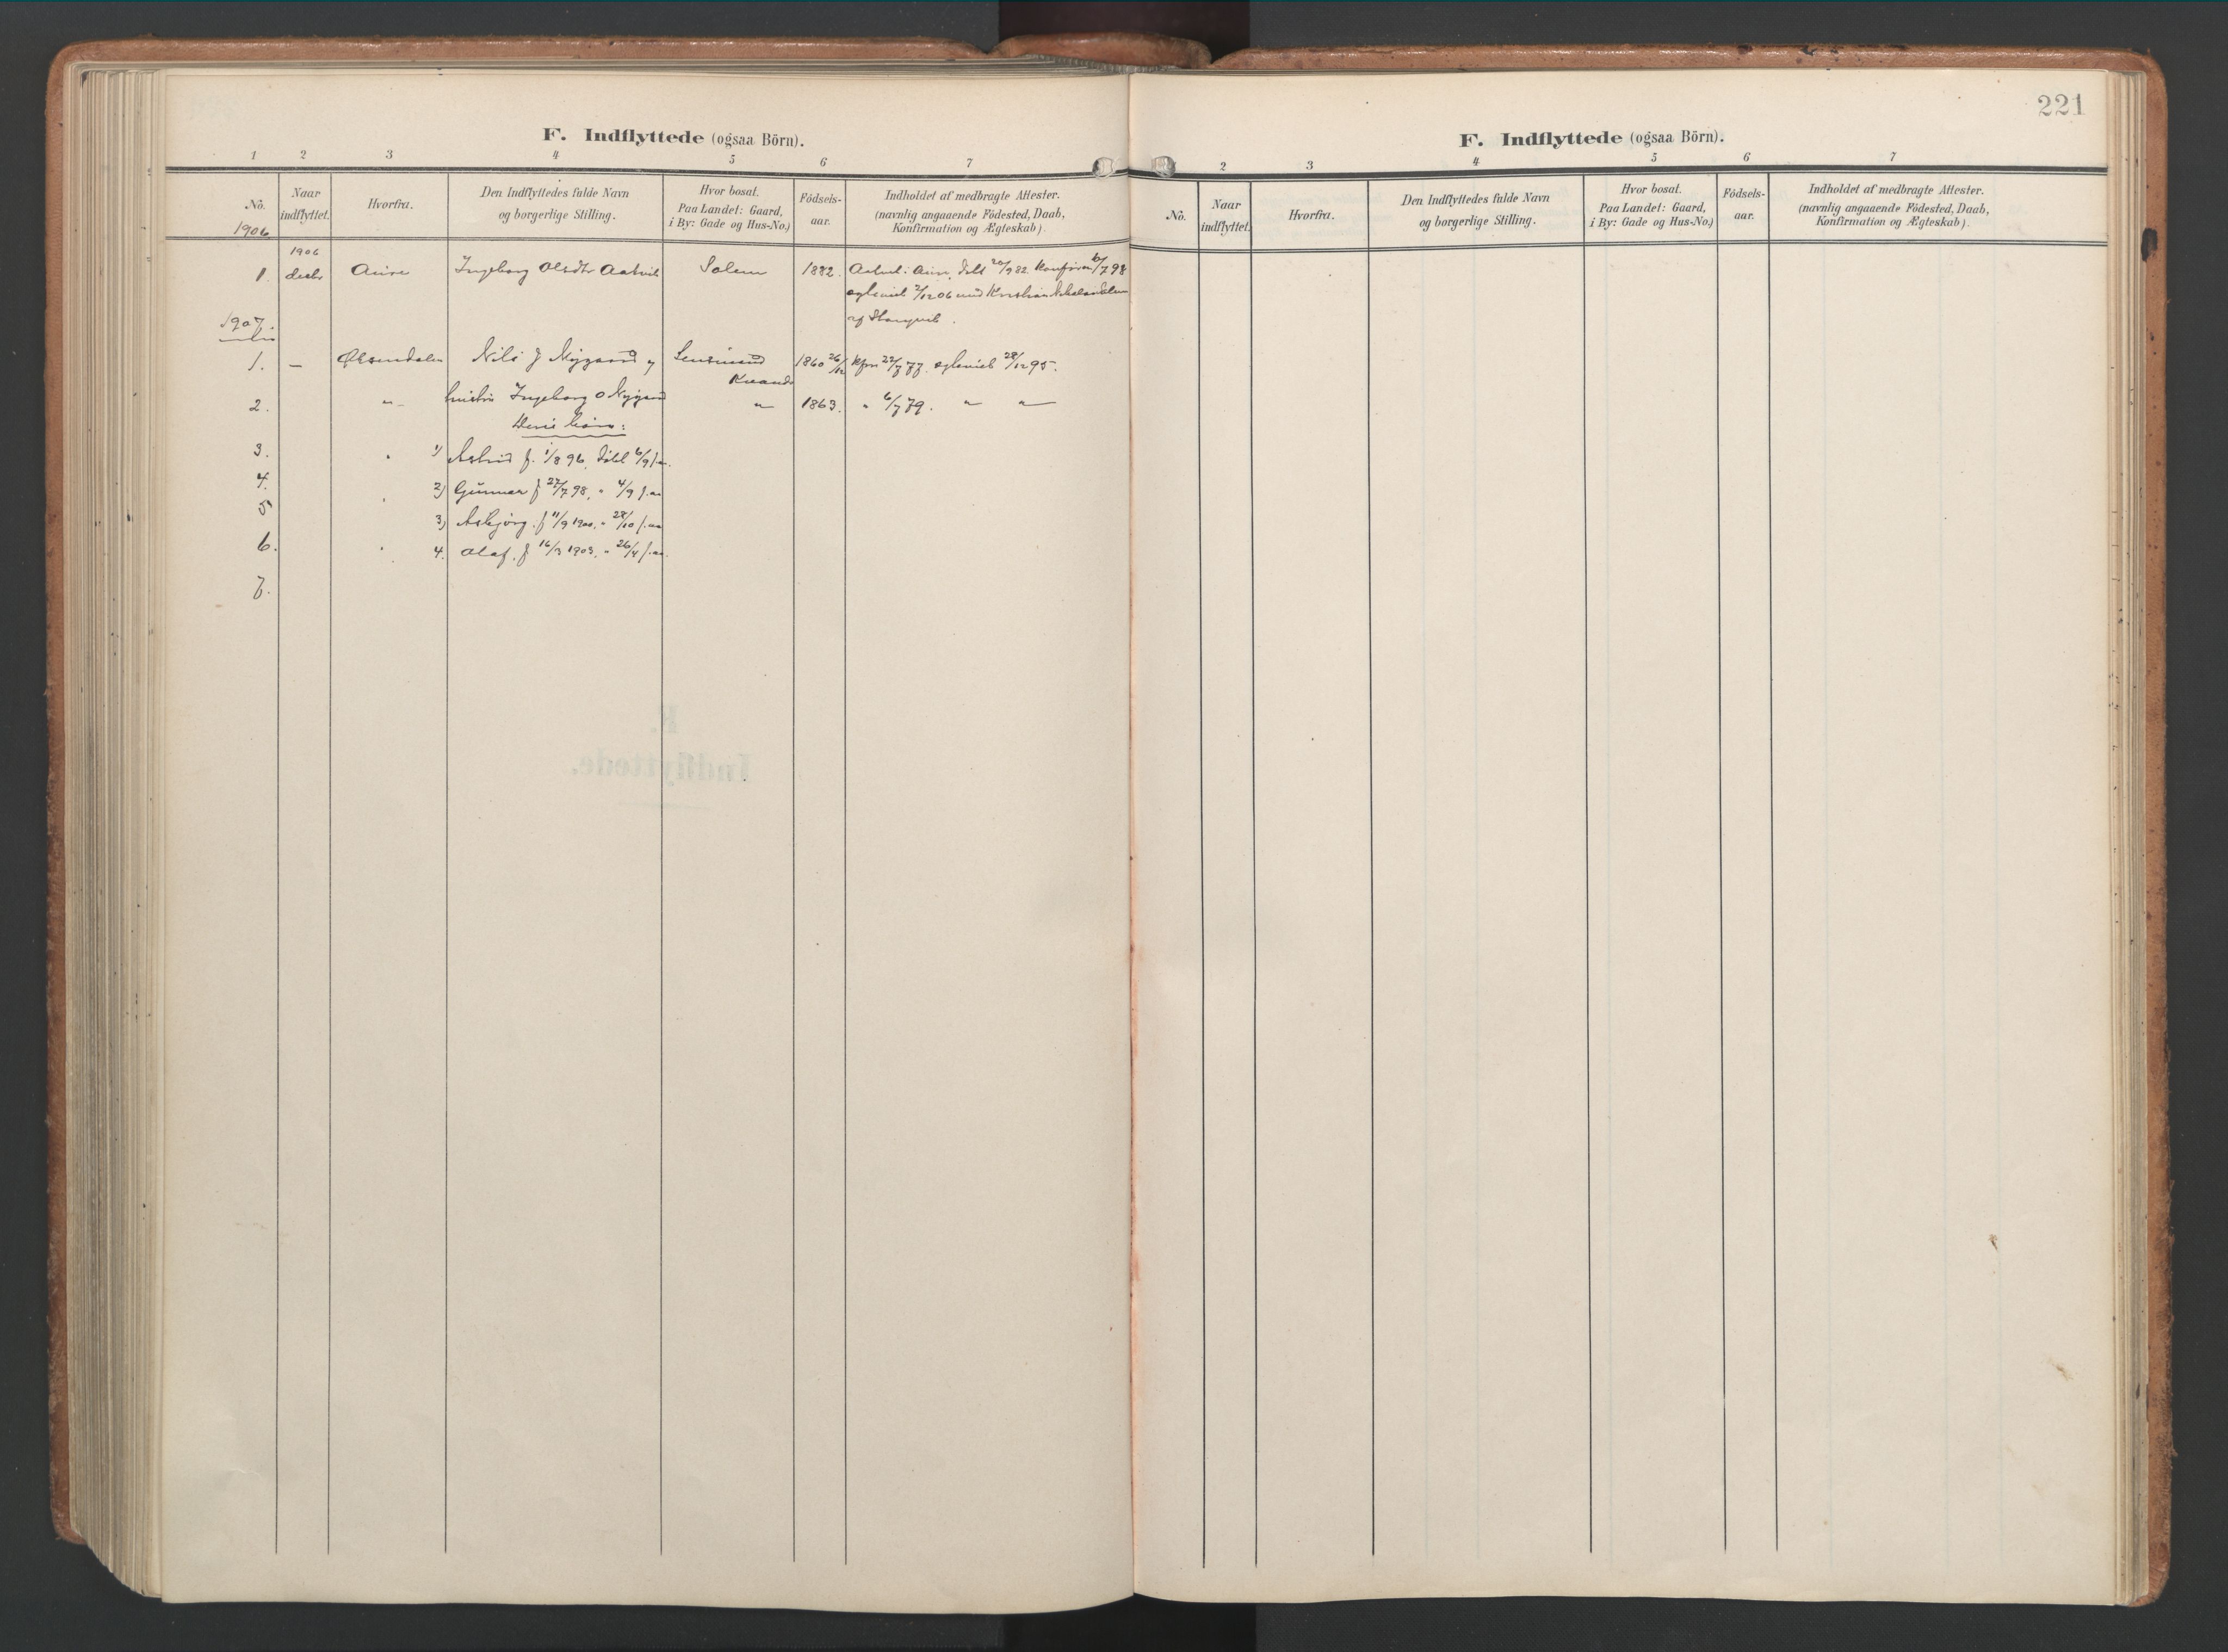 F. Indflyttede (ogsaa Börn).
1 2 3 4 5 6 7
No. Naar indflyttet. Hvorfra. Den Indflyttedes fulde Navn og borgerlige Stilling. Hvor bosat. Paa Landet: Gaard, i By: Gade og Hus-No.) Födsels-aar. Indholdet af medbragte Attester. (navnlig angaaende Födested, Daab, Konfirmation og Ægteskab).
1906
1906
1. decbr Aure Ingeborg Olsdtr Aatvik Solem 1882. Aatvik i Aure, döbt 20/9 82. Konfirm. /7 98
ægteviet 2/12 06 med Kristian
af Stangvik.
1907.
1. — Øksendalen Nils J Nygaard og Lensmand 1860 26/12 kfm 22/7 77. ægteviet 28/12 95.
Kvande
2. " Hustru Ingeborg O Nygaard " 1863. " 6/7 79. " "
Deres børn:
3. " 1) Astrid f. 1/8 96, døbt 6/9 s.a.
4. 2) Gunnar f 27/7 98, " 4/9 s.aa
5 "
3) Asbjørg. f 11/9 1900, " 28/10 s.aa
6. " 4. Olaf. f 16/3 1903, " 26/4 s.aa.
7.
221
F. Indflyttede (ogsaa Börn).
2 3 4 5 6 7
No. Naar indflyttet. Hvorfra. Den Indflyttedes fulde Navn og borgerlige Stilling. Hvor bosat. Paa Landet: Gaard, i By: Gade og Hus-No.) Födsels-aar. Indholdet af medbragte Attester. (navnlig angaaende Födested, Daab, Konfirmation og Ægteskab).